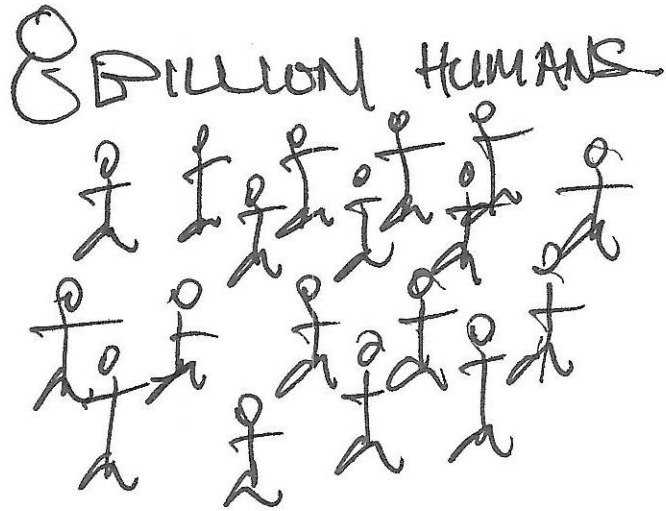 8 BILLION HUMANS